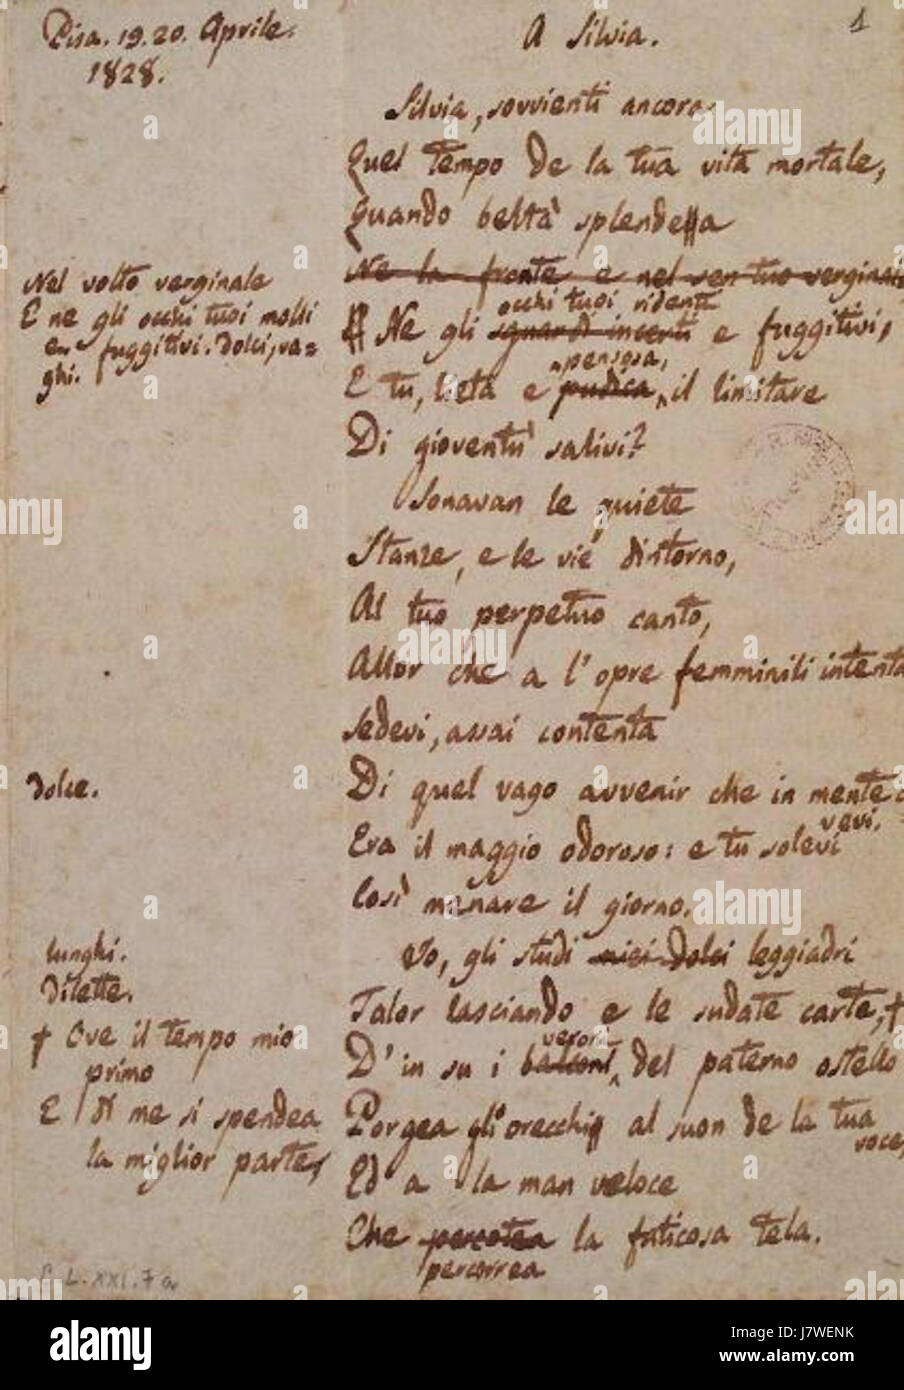 Pisa. 19. 20. Aprile.
1828.
1
A Silvia.
Silvia, sovvienti ancora
Quel tempo de la tua vita mortale,
Quando beltà splendea
Ne la fronte e nel sen tuo verginale
Nel volto verginale
E ne gli occhi tuoi molli
e fuggitivi. Dolci, va=
ghi.
occhi tuoi ridenti
Ne gli sguardi incerti e fuggitivi,
pensosa,
E tu, lieta e pudica, il limitare
Di gioventù salivi?
Sonavan le quiete
Stanze, e le vie dintorno,
Al tuo perpetuo canto,
Allor che a l'opre femminili intenta
Sedevi, assai contenta
dolce.
Di quel vago avvenir che in mente a
vevi.
Era il maggio odoroso: e tu solevi
Così menare il giorno.
lunghi.
Dilette.
Io, gli studi miei dolci leggiadri
Talor lasciando e le sudate carte, †
† Ove il tempo mio
primo
E di me si spendea
la miglior parte,
veroni
D'in su i balconi del paterno ostello
Porgea gli orecchi al suon de la tua
voce,
Ed a la man veloce
Che percotea la faticosa tela.
percorrea
L. XXI. 7 a
alamy
Image ID: J7WENK
www.alamy.com